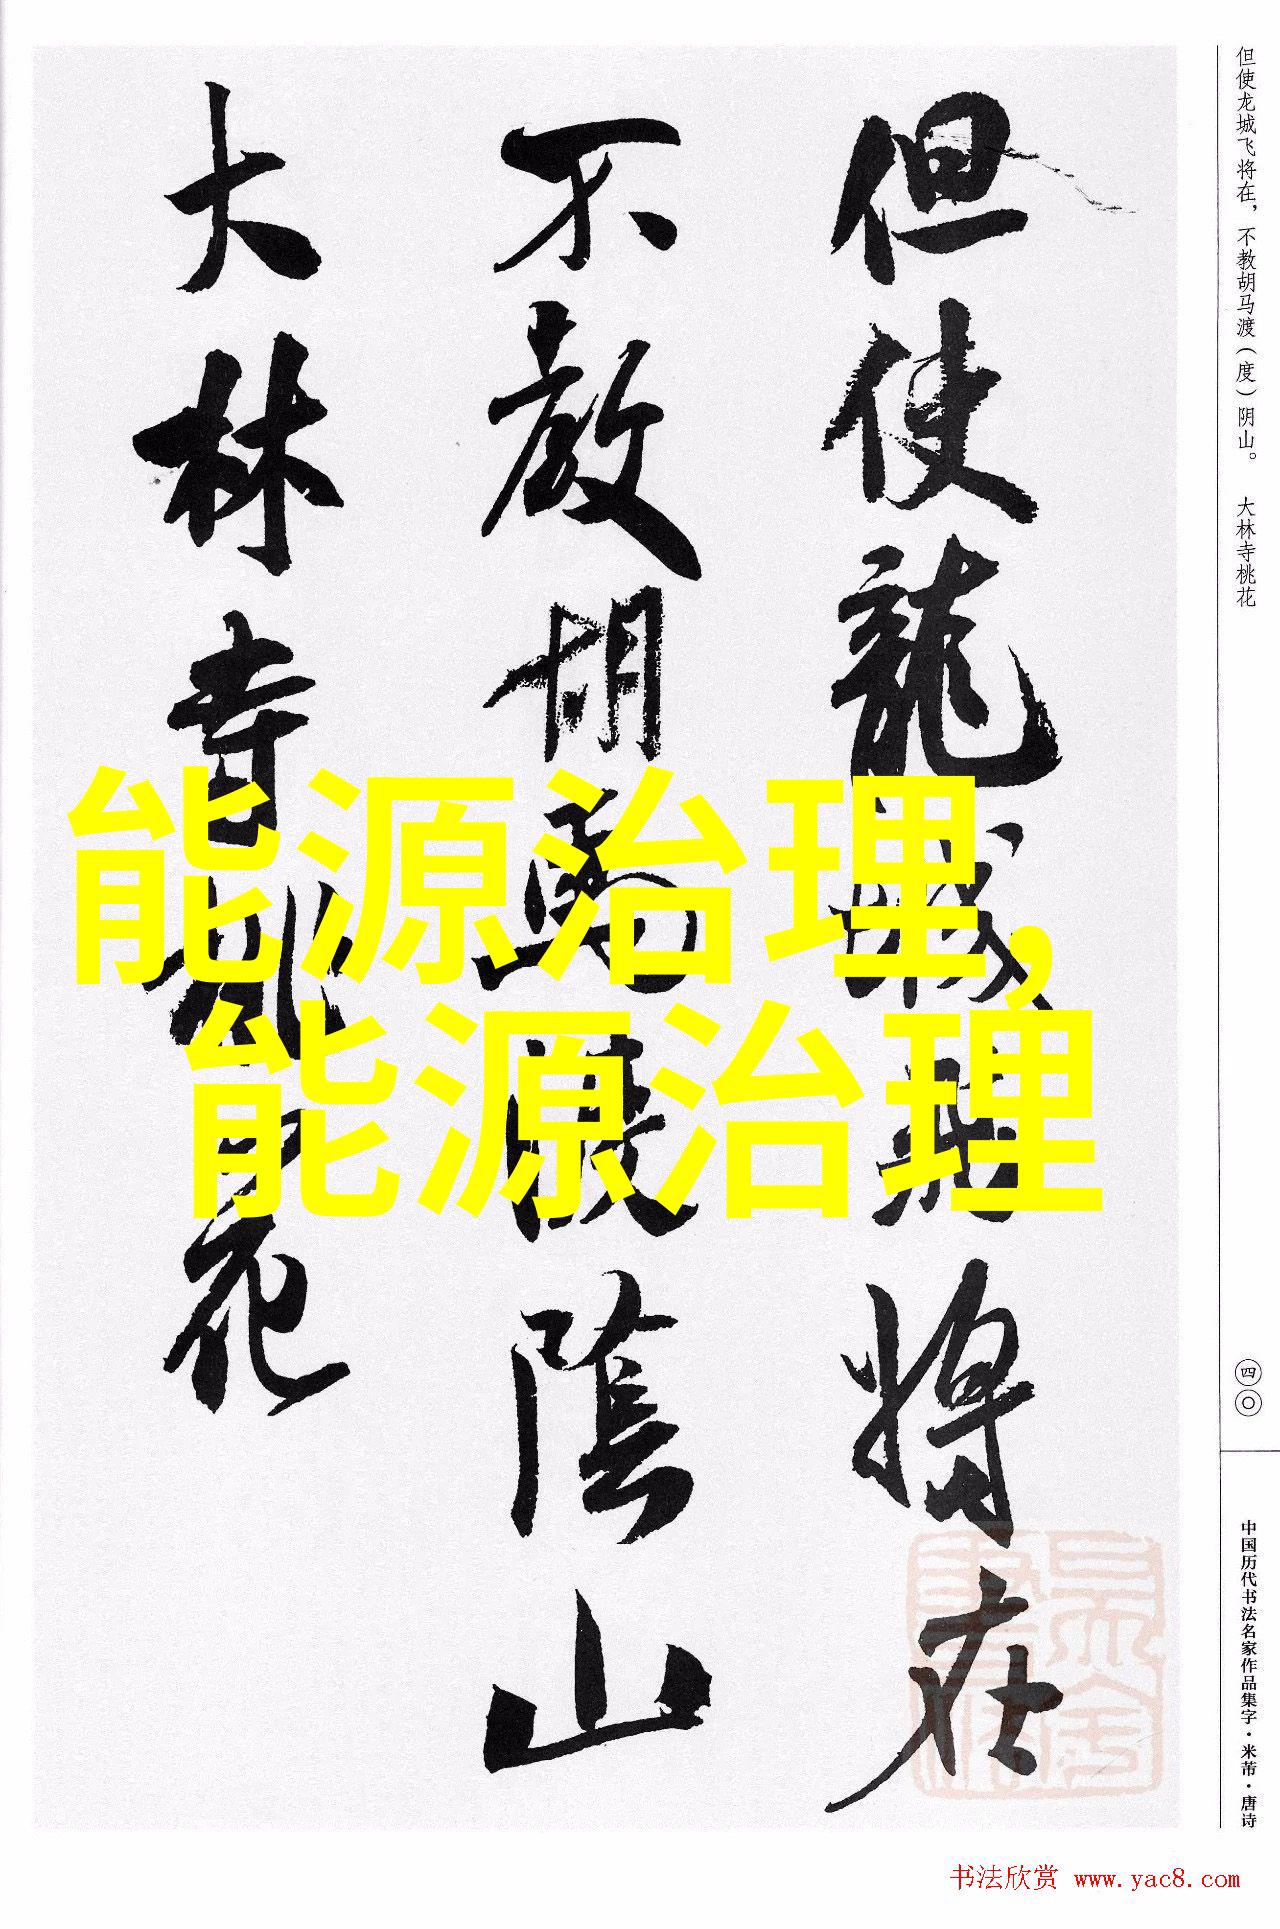 但使龍城飛將在
不教胡馬渡陰山
大林寺桃花
能源治理,
能源治理
但使龙城飞将在，不教胡马渡（度）阴山。 大林寺桃花
四〇
中国历代书法名家作品集字·米芾·唐诗
书法欣赏 www.yac8.com